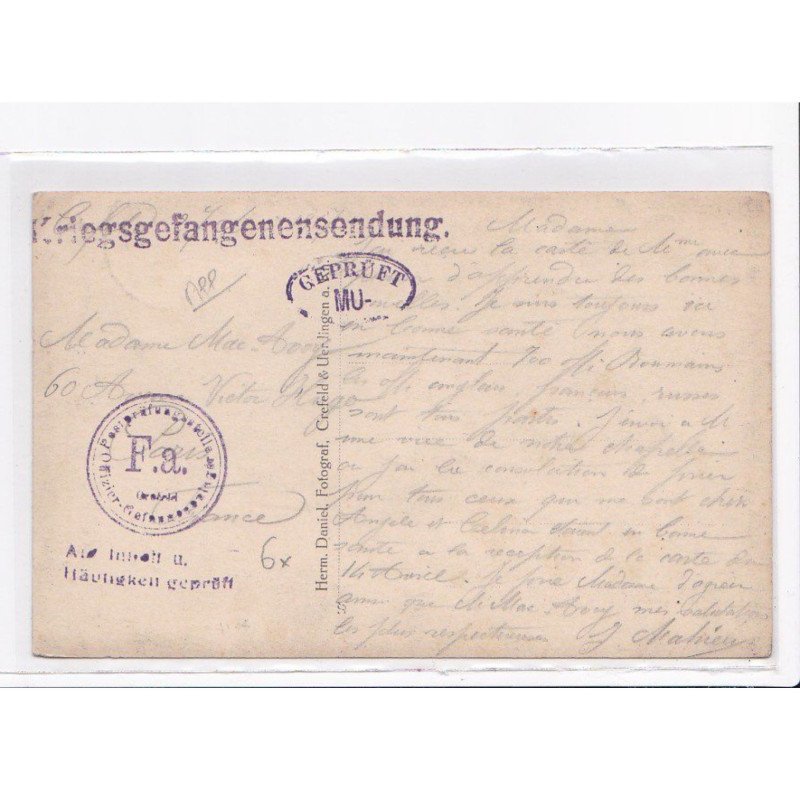 Kriegsgefangenensendung.
GEPRÜFT
MU-
APP
Madame Mac-Avoy
60 Avenue Victor Hugo
Paris
France
Postprüfungsstelle
Offizier-Gefangenenlager
F.a.
Crefeld
Auf Inhalt u.
Häufigkeit geprüft
6x
Herm. Daniel, Fotograf, Crefeld & Uerdingen a.
Madame
reçu la carte de Mme
d'apprendre des bonnes
nouvelles. Je suis toujours
en bonne santé nous avons
maintenant 700 offi Roumains
les off. anglais français russes
sont tous partis. J'envoie à M
une vue de notre chapelle
où j'ai la consolation de prier
pour tous ceux qui me sont chers
Angèle et Celina étant en bonne
santé à la réception de la carte du
14 Avril. Je prie Madame d'agréer
ainsi que Mr Mac-Avoy mes salutations
les plus respectueuses J Mahieu